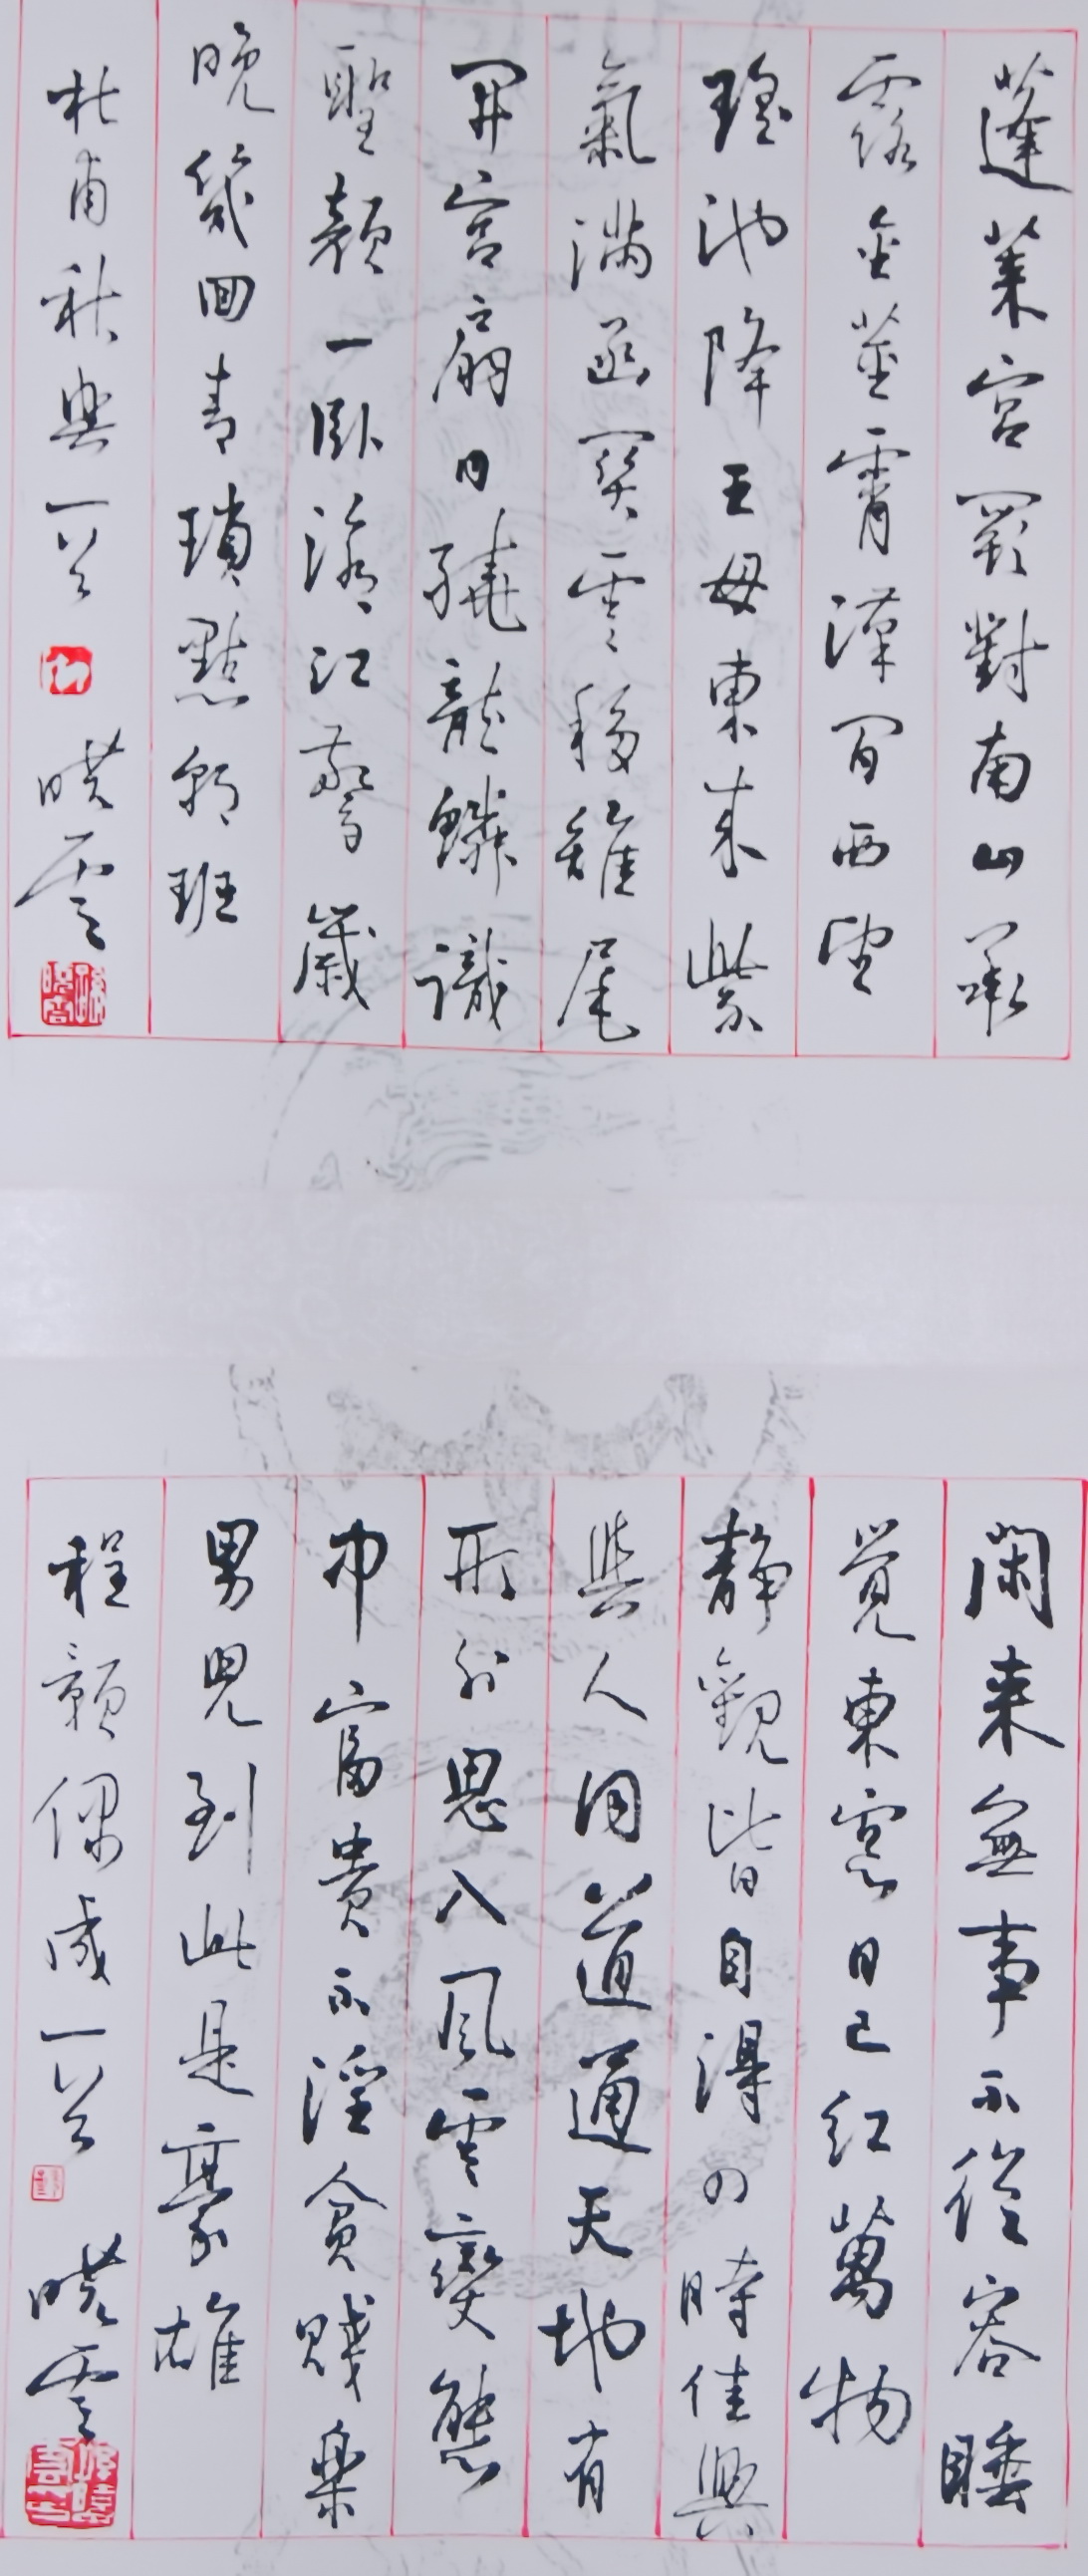 蓬萊宮闕對南山承
露金莖霄漢間西望
瑤池降王母東來紫
氣滿函關雲移雉尾
開宮扇日繞龍鱗識
聖顏一臥滄江驚歲
晚幾回青瑣點朝班
杜甫秋興一首
曉雲
閑來無事不從容睡
覺東窗日已紅萬物
靜觀皆自得四時佳興
與人同道通天地有
形外思入風雲變態
中富貴不淫貧賤樂
男兒到此是豪雄
程顥偶成一首
曉雲